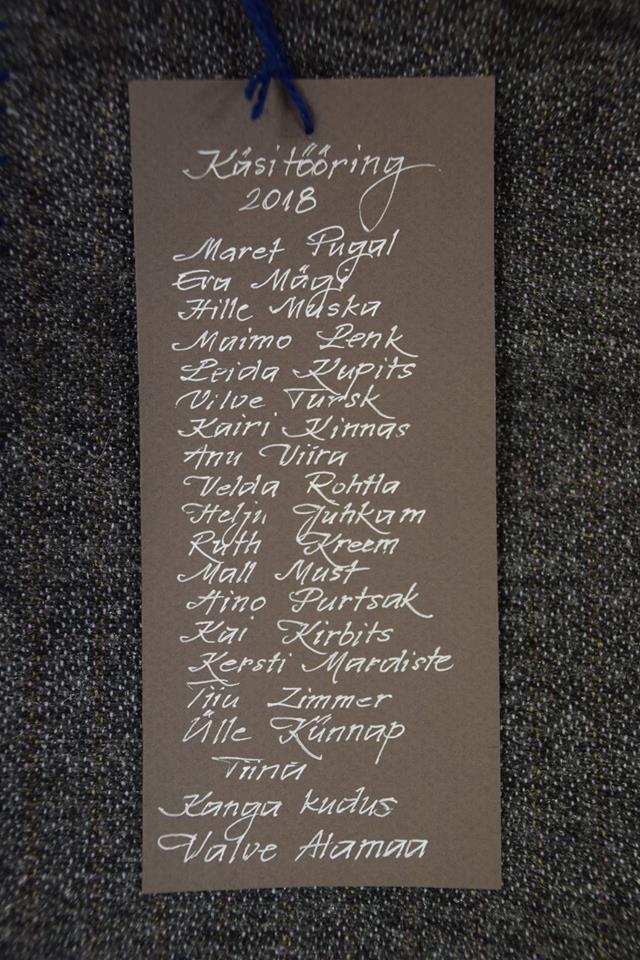 Käsitööring
2018
Maret Pugal
Eva Mägi
Hille Muska
Maimo Penk
Leida Kupits
Vilve Tursk
Kairi Kinnas
Anu Viira
Velda Rohtla
Helju Juhkam
Ruth Kreem
Mall Must
Aino Purtsak
Kai Kirbits
Kersti Mardiste
Tiiu Zimmer
Ülle Künnap
Tiina
Kanga kudus
Valve Alamaa